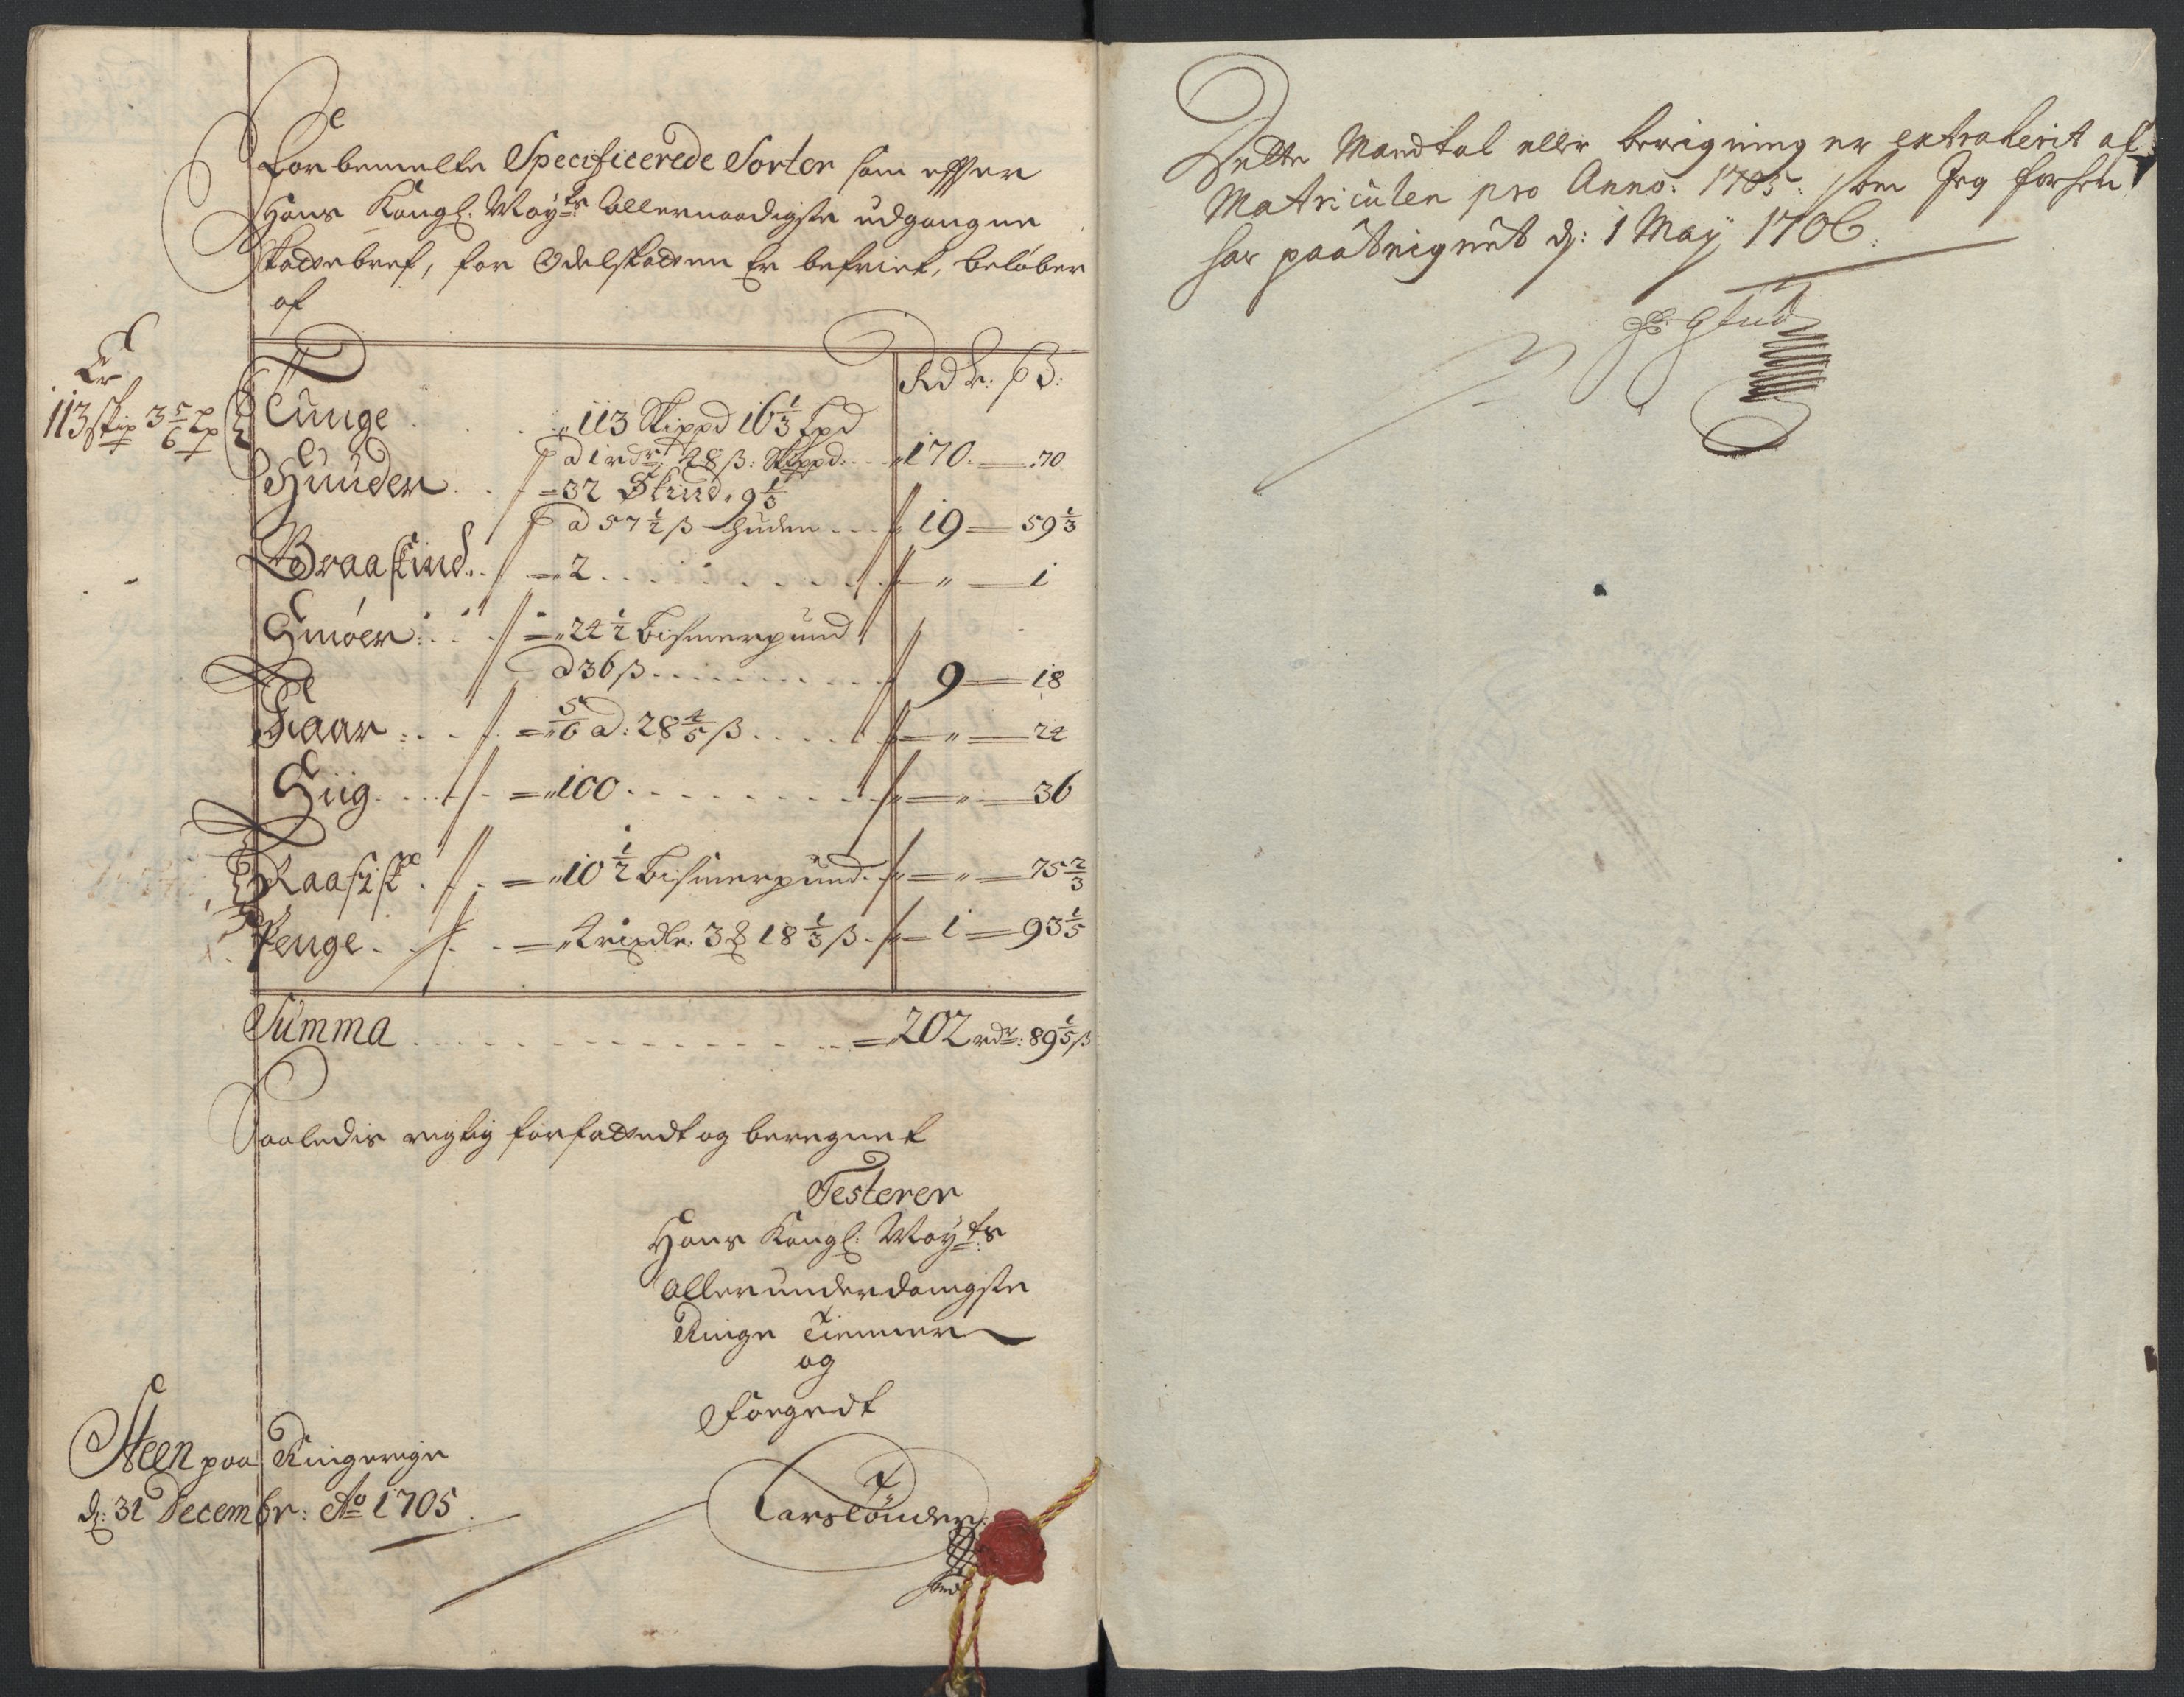 Forbemelte Specificerede Sorter som effter
Hans Kongl: May:ts Allernaadigste udgangne
Skattebref, for Odelskatten Er befriet, beløber
af
Rdr: ß:
Er
113 skip 3 5/6 Lp
Tunge . . . 113 Skippd 16 1/3 Lpd
a 1 rdr 48 ß: Skippd: . . 170 — 70
Huuder . . = 32 Skind, 9 1/3
a 57 1/2 ß huden . . . 19 — 59 1/3
Graaskind . . = 2 . . . . „ — 1
Smøer . . = 24 1/2 bismerpund
a 36 ß . . . . 9 — 18
Faar . . . = 5/6 a: 28 4/5 ß . . . . „ — 24
Siig . . . = 100 . . . . „ — 36
Raafisk . . = 10 1/2 bismerpund . „ — 75 2/3
Penge . . . = 4 rixdlr: 3 18 1/3 ß . 1 — 93 1/5
Summa . . . . = 202 rdr: 89 1/5 ß
Saaledis rigtig forfattedt og beregnet
Testerer
Hans Kongl: May:ts
Allerunderdanigste
Ringe Tienner
og
Foegedt
Steen paa Ringerige
d: 31 Decembr: Ao 1705
Lars Tønder
Dette Mandtal eller beregning er extraherit af
Matriculen pro Anno: 1705: som Jeg forhen
har paategnet d: 1 May 1706.